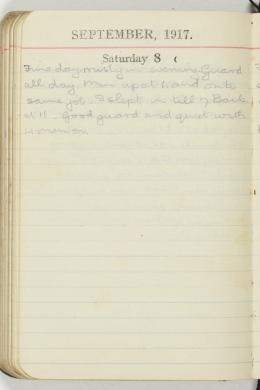 SEPTEMBER, 1917.
Saturday 8
Fine day misty in evening. Guard
all day. Men up at 4 and onto
same job. I slept in till 7. Back
at 11. Good guard and quiet with
4 men on